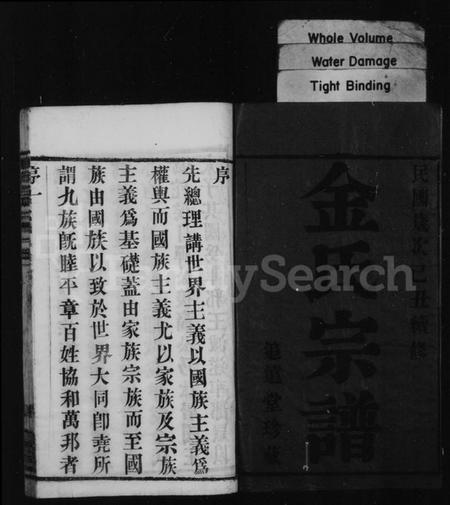 Whole Volume
Water Damage
Tight Binding
民國歲次己丑續修
金氏宗譜
堂珍藏
序
先總理講世界主義以國族主義為
權輿而國族主義尤以家族及宗族
主義爲基礎蓋由家族宗族而至國
族由國族以致於世界大同卽堯所
謂九族旣睦平章百姓協和萬邦者
序一
FamilySearch